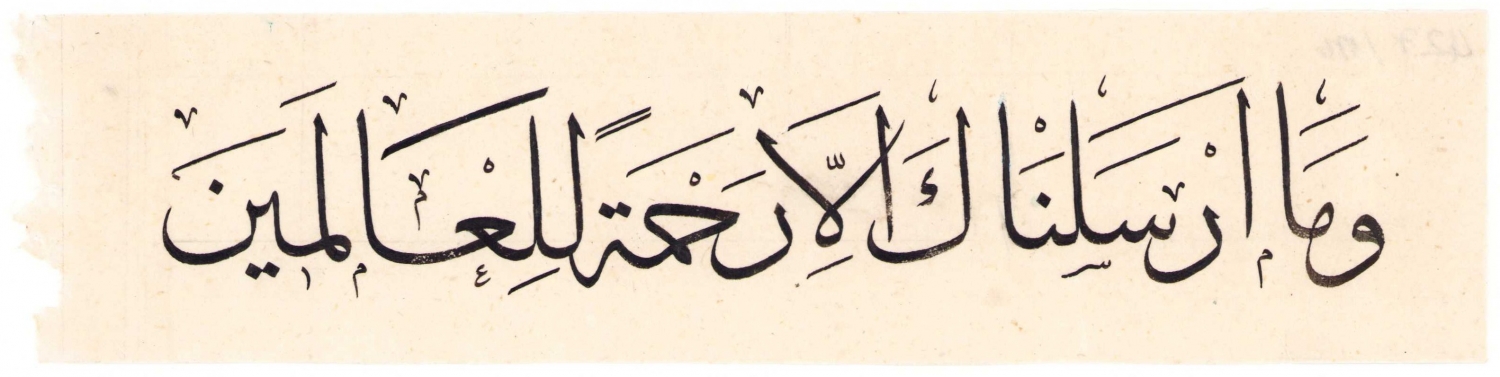 وَمَا اَرْسَلْنَاكَ اِلَّا رَحْمَةً لِلْعَالَمِينَ